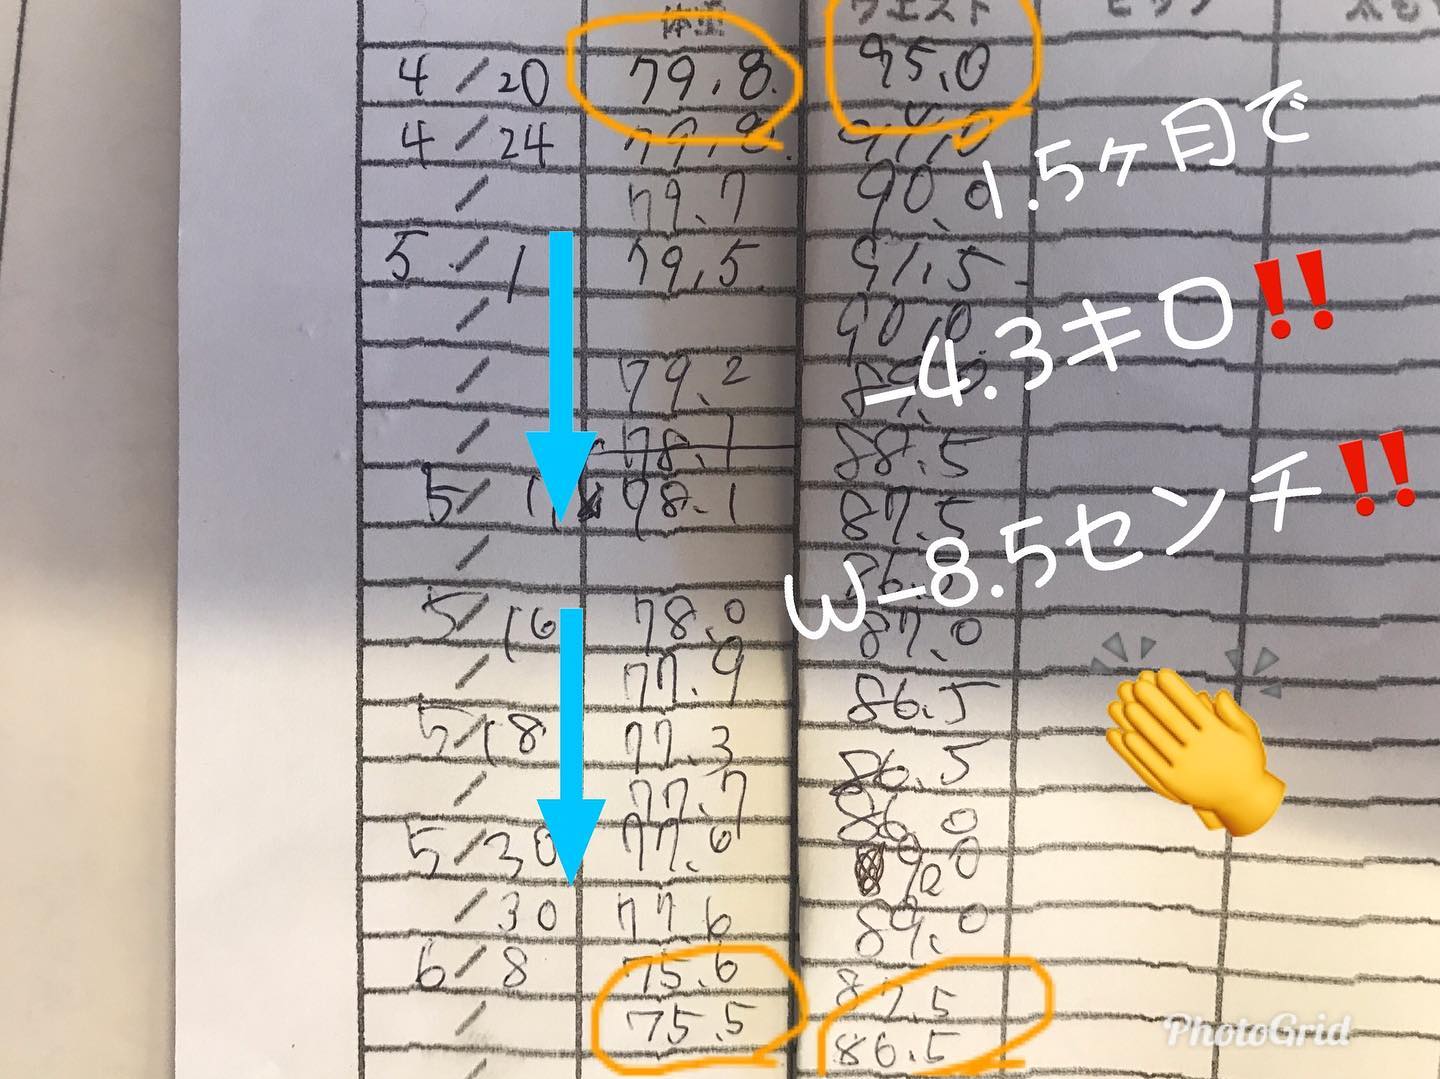 体重 ウエスト ヒップ 太もも
4/20 79.8 95.0
4/24 79.8
/ 79.7 90.0
1.5ヶ月で
5/1 79.5 91.5
/ 90.0
-4.3キロ‼️
/ 79.2
/ 78.1 88.5
5/11 78.1 87.5
W-8.5センチ‼️
/
5/16 78.0 87.0
/ 77.9 86.5
5/18 77.3 86.5
/ 77.7 86.0
5/30 77.6
/30 77.6 89.0
6/8 75.6 87.5
/ 75.5 86.5
PhotoGrid